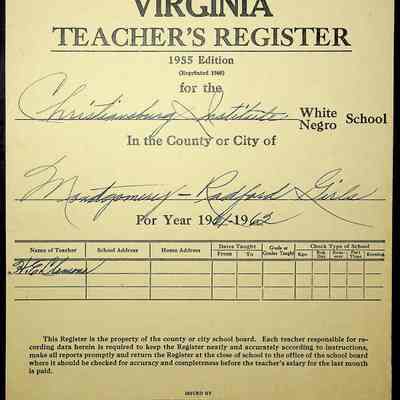 VIRGINIA
TEACHER'S REGISTER
1955 Edition
(Reprinted 1960)
for the
Christiansburg Institute White Negro School
In the County or City of
Montgomery - Radford Girls
For Year 1961-1962
Name of Teacher School Address Home Address Dates Taught From To Grade or Grades Taught Check Type of School Kgn. Reg. Day Sum-mer Part Time Evening
Clemons
This Register is the property of the county or city school board. Each teacher responsible for re-
cording data herein is required to keep the Register neatly and accurately according to instructions,
make all reports promptly and return the Register at the close of school to the office of the school board
where it should be checked for accuracy and completeness before the teacher's salary for the last month
is paid.
ISSUED BY